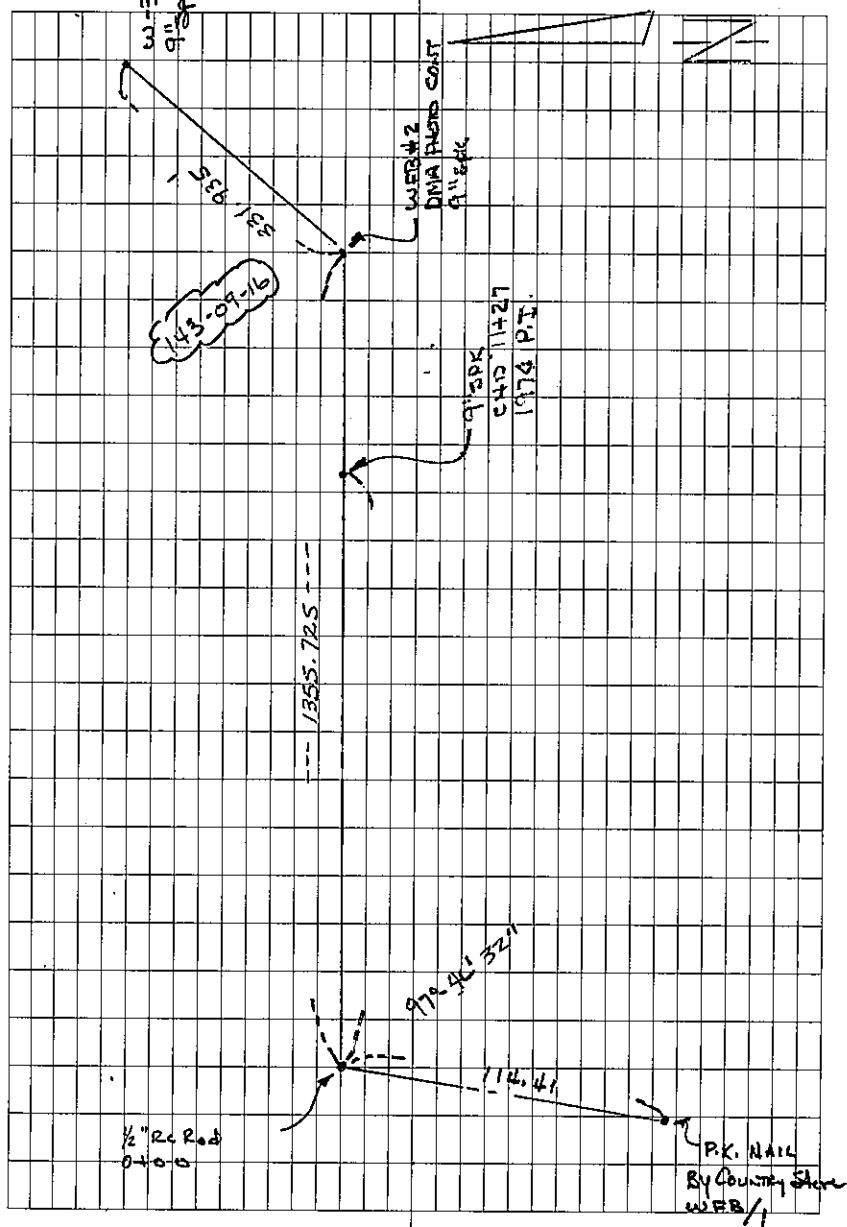 9"
N
WFB#2
DMA PHOTO CONT
9" SPK
331.935'
143-09-16
9" SPK
CHD 11+27
1974 P.I.
--- 1355.725 ---
97°46'32"
114.41
1/2" Re Rod
0+00
P.K. NAIL
By Country Store
WFB/1